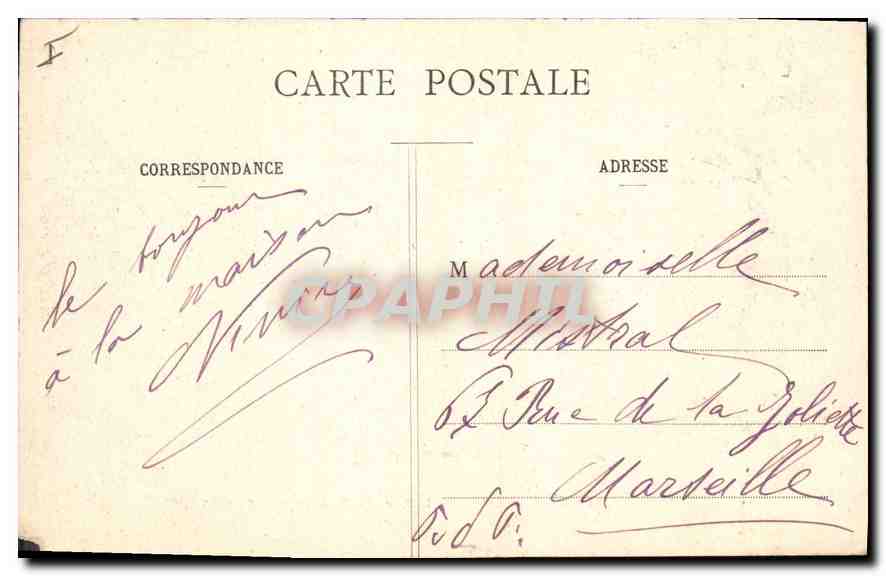 I
CARTE POSTALE
CORRESPONDANCE
le toujour
à la maison
ADRESSE
Mademoiselle
Mistral
67 Rue de la Joliette
Marseille
CPAPHIL